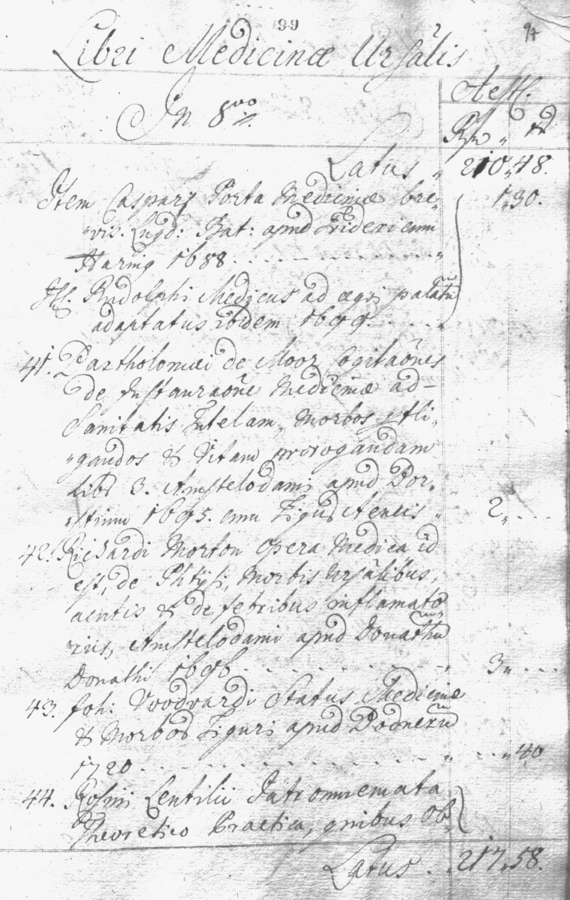 99
97
Libri Medicinæ Ursalis
Aestt:
In 8vo
Rf „ xr
Latus „ 210„48.
Item Caspary Porta Medicinæ bre, 1„30.
„vis. Lugd: Bat: apud Fridericum
Haring 1688
It. Rudolphi Medicus ad ægri palatũ
adaptatus ibidem 1699
41. Bartholomæi de Moor Cogitaões
de Instauraõne Medicinæ ad-
Sanitatis Tutelam, Morbos Pfli,
„gandos & Vitam prorogandam
libr 3. Amstelodami apud Dor,
1695. cum Figuris Aeneis „ 2„
42. Richardi Morton Opera Medica id
est, de Phtysi, Morbis Ursalibus,
acutis & de febribus inflamato
„riis, Amstelodami apud Donatũ
Donati 1696 3„
43. Joh: Vodvardi Status Medicinæ
& Morbor Tiguri apud Bodnerũ
1720 „40
44. Rosini Lentilii Iatromnemata
Theoretico Practica, quibus ob
Latus . 217„58.